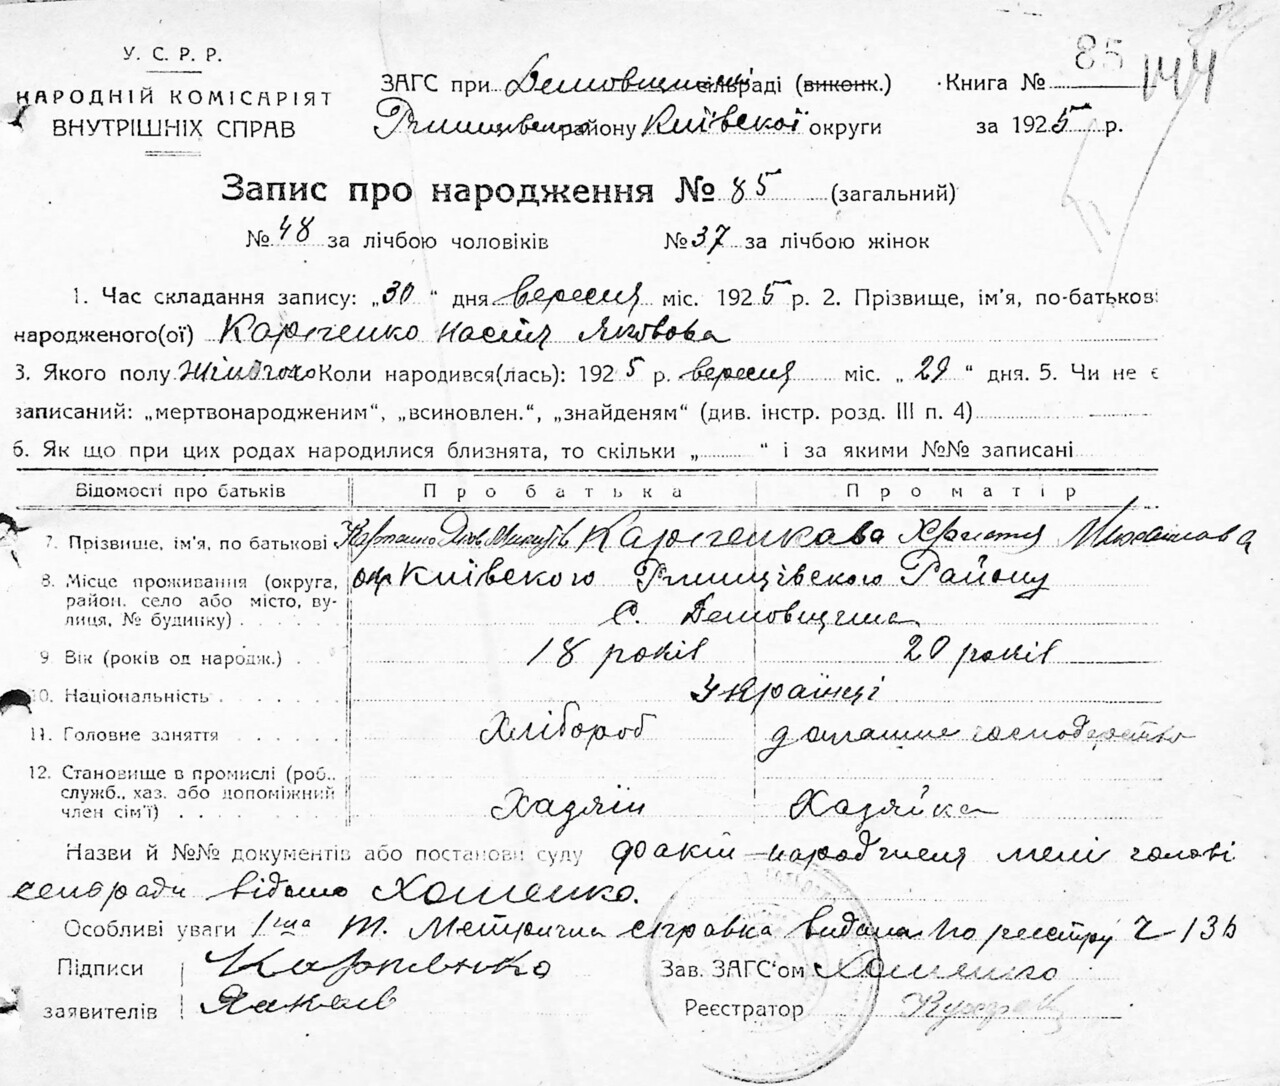 У. С. Р. Р.
НАРОДНІЙ КОМІСАРІЯТ
ВНУТРІШНІХ СПРАВ
ЗАГС при Демовщин сільраді (виконк.)
району Київскої округи
Книга № 85 144
за 1925 р.
Запис про народження № 85 (загальний)
№ 48 за лічбою чоловіків № 37 за лічбою жінок
1. Час складання запису: „30“ дня вересня міс. 1925 р. 2. Прізвище, ім'я, по-батькові
народженого(ої) Карпенко Настя Яковова
3. Якого полу Жіночого Коли народився(лась): 1925 р. вересня міс. „29“ дня. 5. Чи не є
записаний: „мертвонародженим“, „всиновлен.“, „знайденям“ (див. інстр. розд. III п. 4)
6. Як що при цих родах народилися близнята, то скільки „ “ і за якими №№ записані
Відомості про батьків Про батька Про матір
7. Прізвище, ім'я, по батькові Карпенко Яков Карпенкова Христя Михайлова
8. Місце проживання (округа, район, село або місто, вулиця, № будинку) окр Київского Ржищівского Району
С. Демовщина
9 Вік (років од народж.) 18 років 20 років
10. Національність Українці
11. Головне заняття Хлібороб домашне господарство
12. Становище в промислі (роб., служб., хаз. або допоміжний член сім'ї) Хазяїн Хазяйка
Назви й №№ документів або постанови суду факт народження мені голові
сельради відомо Хоменко.
Особливі уваги 1ша Т. Метрична справка видана по реестру Ч-136
Підписи Карпенко Зав. ЗАГС'ом Хоменко
заявителів Яаков Реєстратор